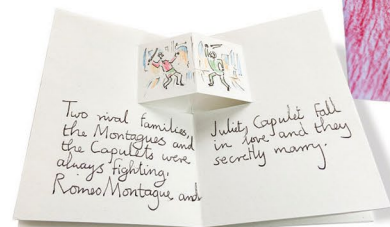 Two rival families,
the Montagues and
the Capulets were
always fighting.
Romeo Montague and
Juliet Capulet fall
in love and they
secretly marry.